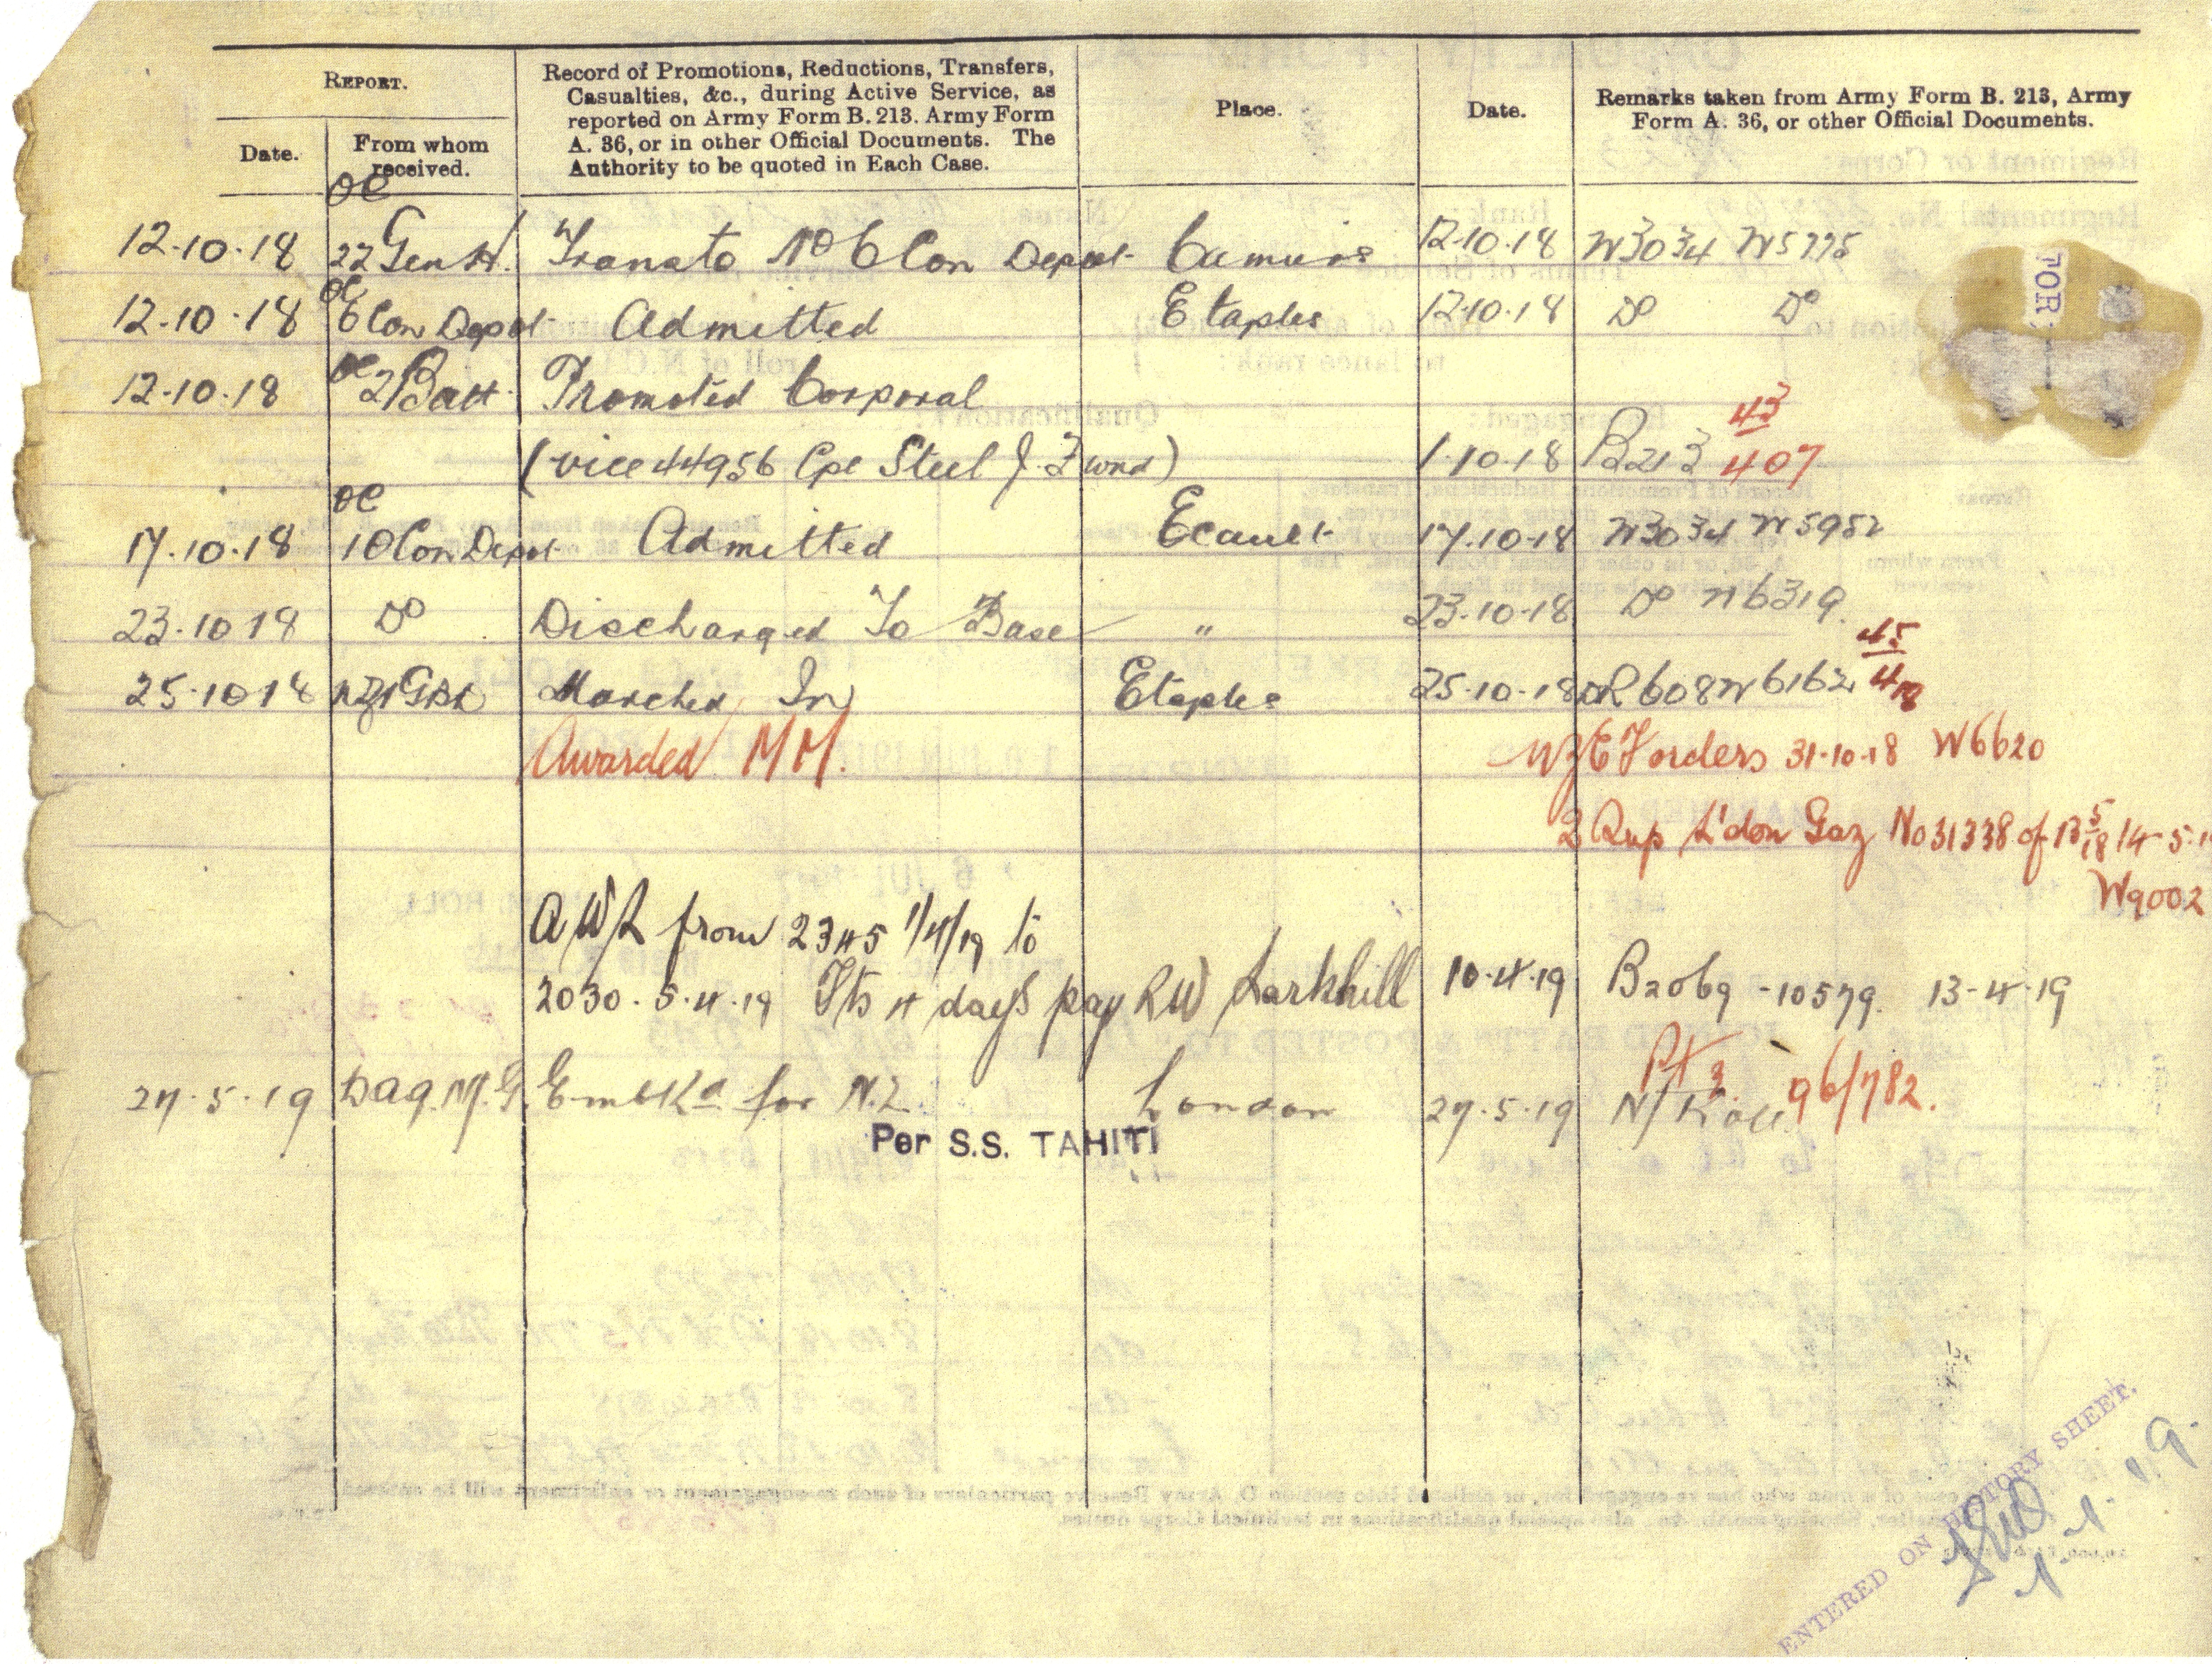 REPORT.
Date.
From whom received.
Record of Promotions, Reductions, Transfers,
Casualties, &c., during Active Service, as
reported on Army Form B. 213. Army Form
A. 36, or in other Official Documents. The
Authority to be quoted in Each Case.
Place.
Date.
Remarks taken from Army Form B. 213, Army
Form A. 36, or other Official Documents.
OC
12.10.18 22 Gen H. Trans to No 6 Con Depot Camiers 12.10.18 W3034 W5775
OC
12.10.18 6 Con Depot Admitted Etaples 12.10.18 Do Do
TOR
12.10.18 OC 2/Batt Promoted Corporal
(vice 44956 Cpl Steel J. wnd) 1.10.18 B213 43 407
OC
17.10.18 10 Con Depot Admitted Ecault 17.10.18 W3034 W5952
23.10 18 Do Discharged To Base " 23.10.18 Do W6319.
25.10 18 Marched In Etaples 25.10.18 DR 608 W6162 45
Awarded MM. NZEF orders 31.10.18 W6620
Sup L'don Gaz No 31338 of 13 5 18 14 5.
W9002
AWL from 2345 1/4/19 to
2030. 5.4.19 Fts 4 days pay RW Larkhill 10.4.19 B2069 -10579. 13-4.19
Pt 96/782.
27.5.19 Embkd for N.Z. London 27.5.19 N/Roll
Per S.S. TAHITI
ENTERED ON HISTORY SHEET.